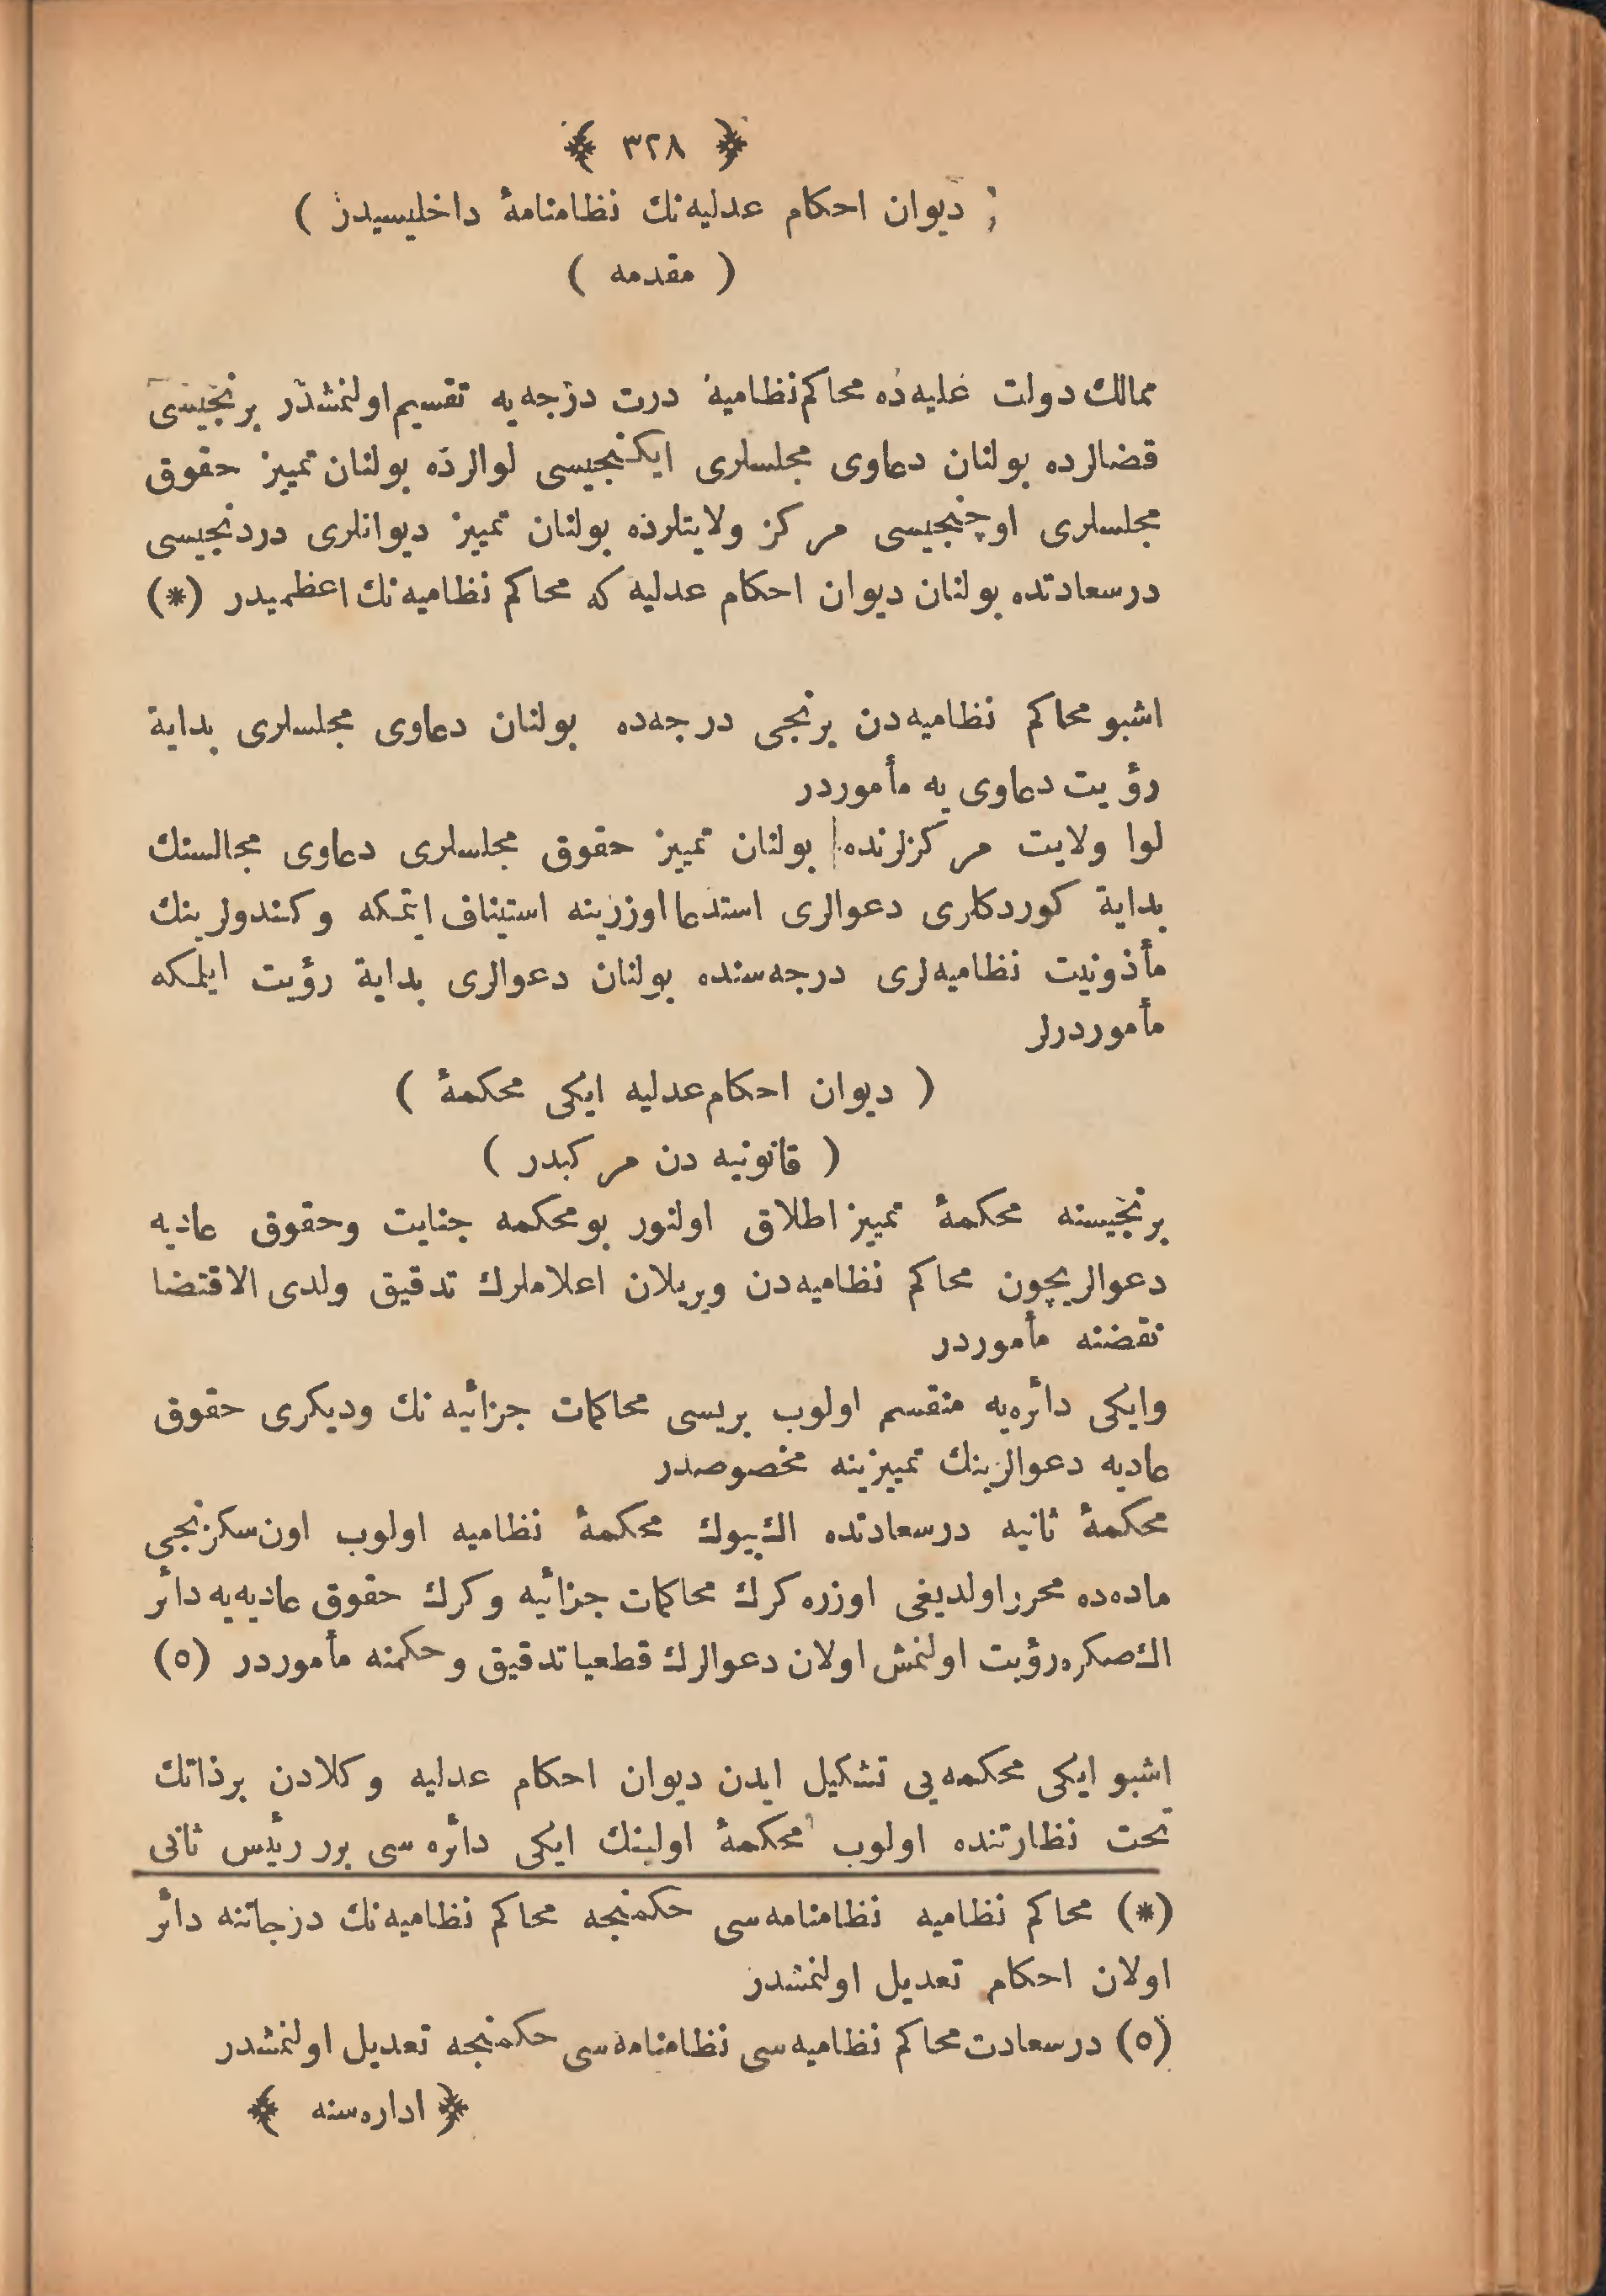 ﴿ ٣٢٨ ﴾
( ديوان احكام عدليه نك نظامنامهٔ داخليسيدر )
( مقدمه )
ممالك دولت عليه ده محاكم نظاميه درت درجه يه تقسيم اولنمشدر برنجيسى
قضالرده بولنان دعاوى مجلسلرى ايكنجيسى لوالرده بولنان تمييز حقوق
مجلسلرى اوچنجيسى مركز ولايتلرده بولنان تمييز ديوانلرى دردنجيسى
درسعادتده بولنان ديوان احكام عدليه كه محاكم نظاميه نك اعظميدر (*)
اشبو محاكم نظاميه دن برنجى درجه ده بولنان دعاوى مجلسلرى بداية
رؤيت دعاوى يه مأموردر
لوا ولايت مركزلرنده بولنان تمييز حقوق مجلسلرى دعاوى مجالسنك
بداية كوردكلرى دعوالرى استدعا اوزرينه استيناف ايتمكه وكندولرينك
مأذونيت نظاميه لرى درجه سنده بولنان دعوالرى بداية رؤيت ايلمكه
مأموردرلر
( ديوان احكام عدليه ايكى محكمهٔ )
( قانونيه دن مركبدر )
برنجيسنه محكمهٔ تمييز اطلاق اولنور بو محكمه جنايت وحقوق عاديه
دعوالريچون محاكم نظاميه دن ويريلان اعلاملرك تدقيق ولدى الاقتضا
نقضنه مأموردر
وايكى دائره يه منقسم اولوب بريسى محاكمات جزائيه نك وديكرى حقوق
عاديه دعوالرينك تمييزينه مخصوصدر
محكمهٔ ثانيه درسعادتده اك بيوك محكمهٔ نظاميه اولوب اون سكزنجى
ماده ده محرر اولديغى اوزره كرك محاكمات جزائيه وكرك حقوق عاديه يه دائر
اك صكره رؤيت اولنمش اولان دعوالرك قطعيا تدقيق وحكمنه مأموردر (٥)
اشبو ايكى محكمه يى تشكيل ايدن ديوان احكام عدليه وكلادن برذاتك
تحت نظارتنده اولوب محكمهٔ اولينك ايكى دائره سى برر رئيس ثانى
(*) محاكم نظاميه نظامنامه سى حكمنجه محاكم نظاميه نك درجاتنه دائر
اولان احكام تعديل اولنمشدر
(٥) درسعادت محاكم نظاميه سى نظامنامه سى حكمنجه تعديل اولنمشدر
﴿ اداره سنه ﴾